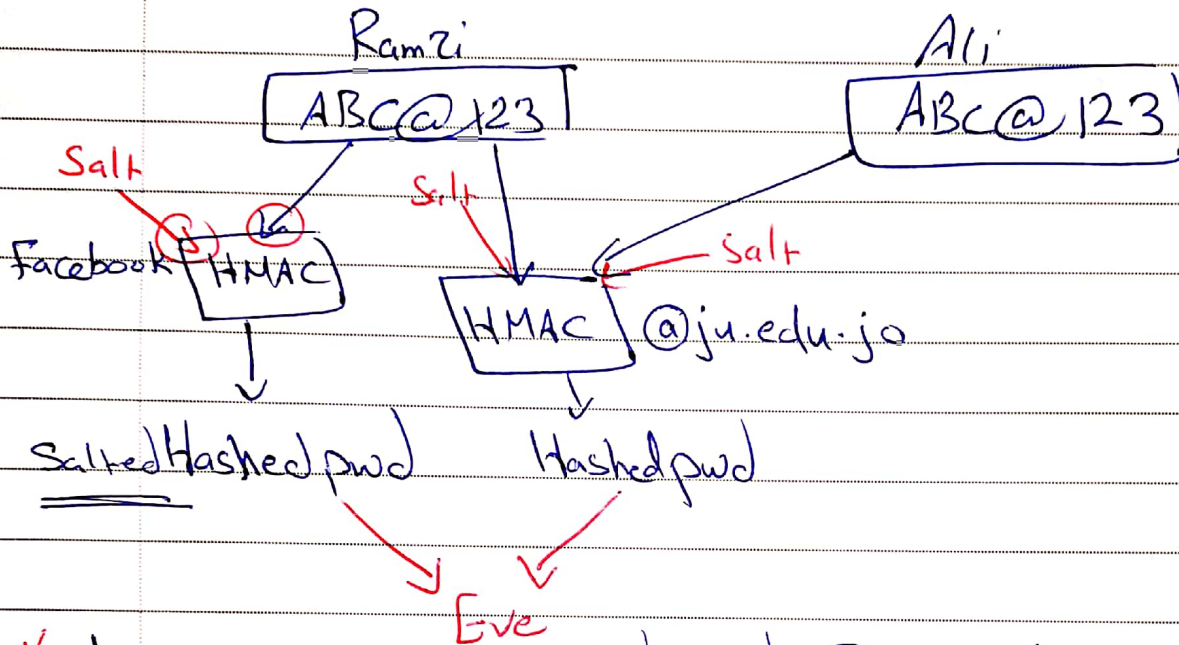 Ramzi Ali
ABC@123 ABC@123
Salt Salt
Salt
Facebook HMAC
HMAC @ju.edu.jo
SaltedHashedpwd Hashedpwd
Eve